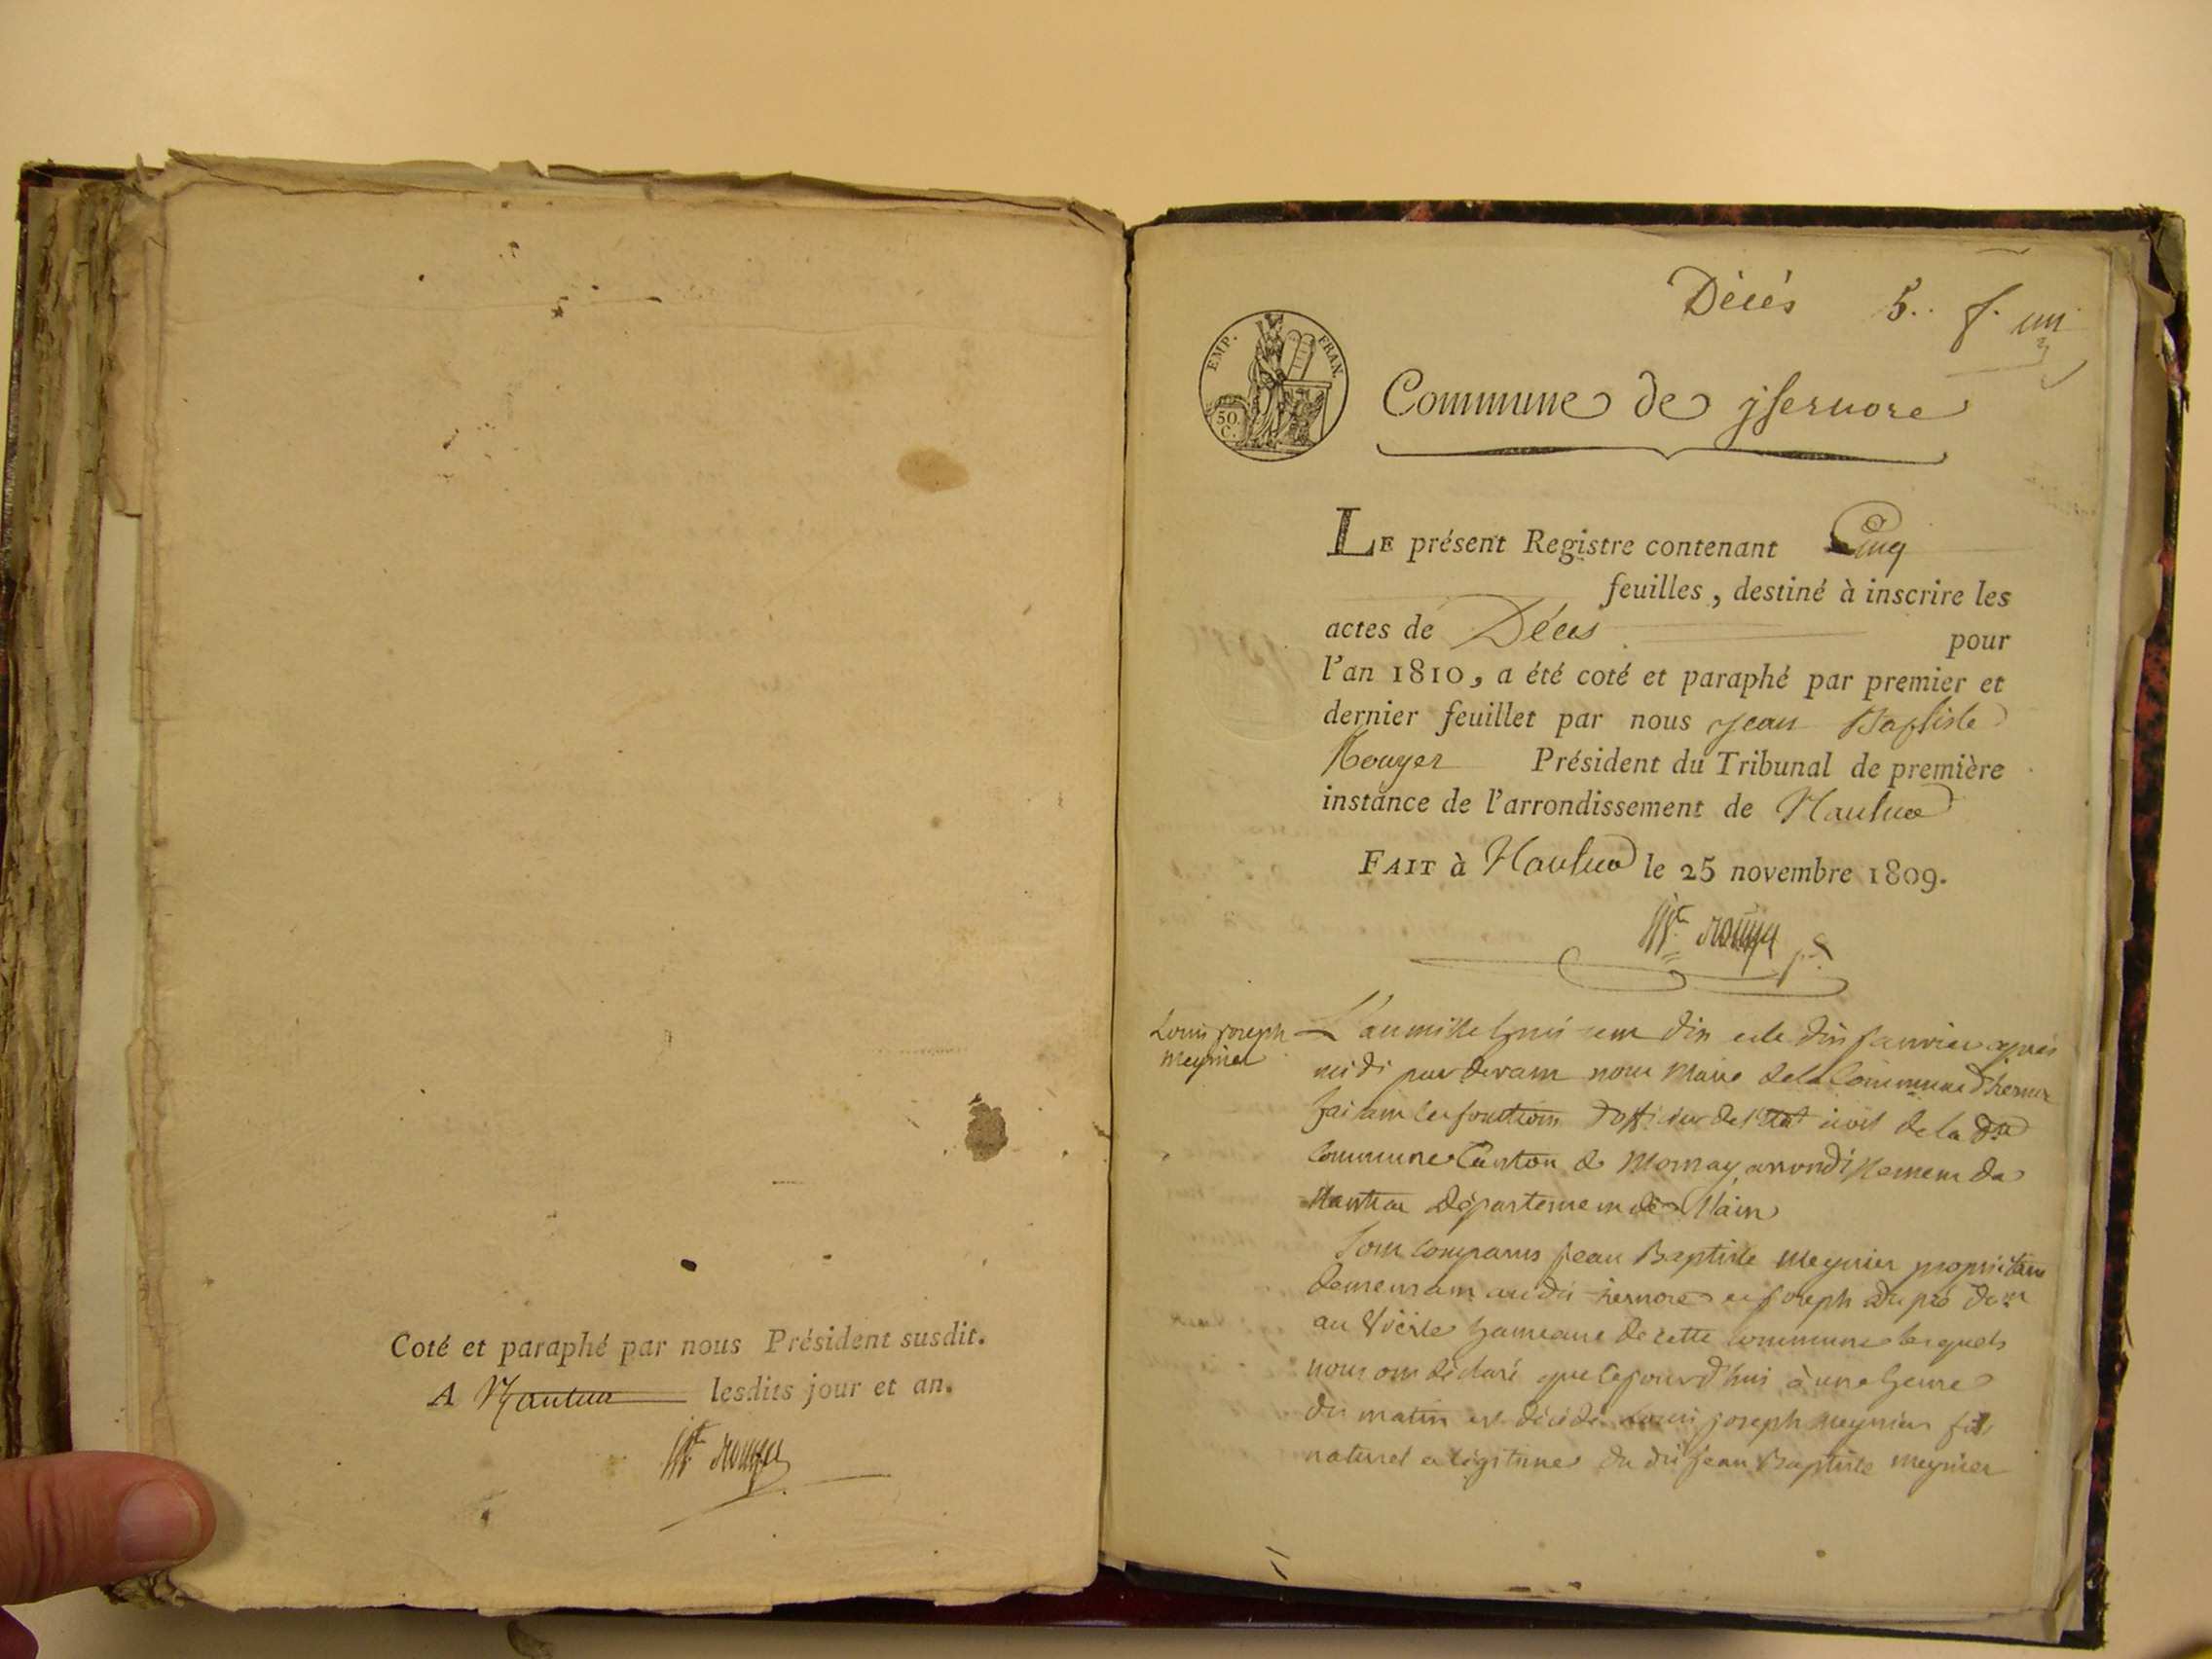 Coté et paraphé par nous Président susdit.
A Nantua lesdits jour et an.
Décés 5. f. un
EMP. FRAN.
50 C.
Commune de jsernore
LE présent Registre contenant Cinq
feuilles, destiné à inscrire les
actes de Décés pour
l'an 1810, a été coté et paraphé par premier et
dernier feuillet par nous Jean Baptiste
Rouyer Président du Tribunal de première
instance de l'arrondissement de Nantua
FAIT à Nantua le 25 novembre 1809.
rouyer
Louis joseph
Meynier
L'an mille huit cent dix et le dix janvier après
midi par devant nous Maire de la Commune d'isernore
faisant les fonctions d'officier de l'Etat civil de la dte
Commune Canton de Mornay, arrondissement de
Nantua département de l'ain
Sont comparus jean Baptiste Meynier propriétaire
demeurant audit isernore et joseph Dupré demt
au hameau de cette commune lesquels
nous ont déclaré que cejourd'hui à une heure
du matin est décédé Louis joseph meynier fils
naturel et légitime du dit jean Baptiste meynier